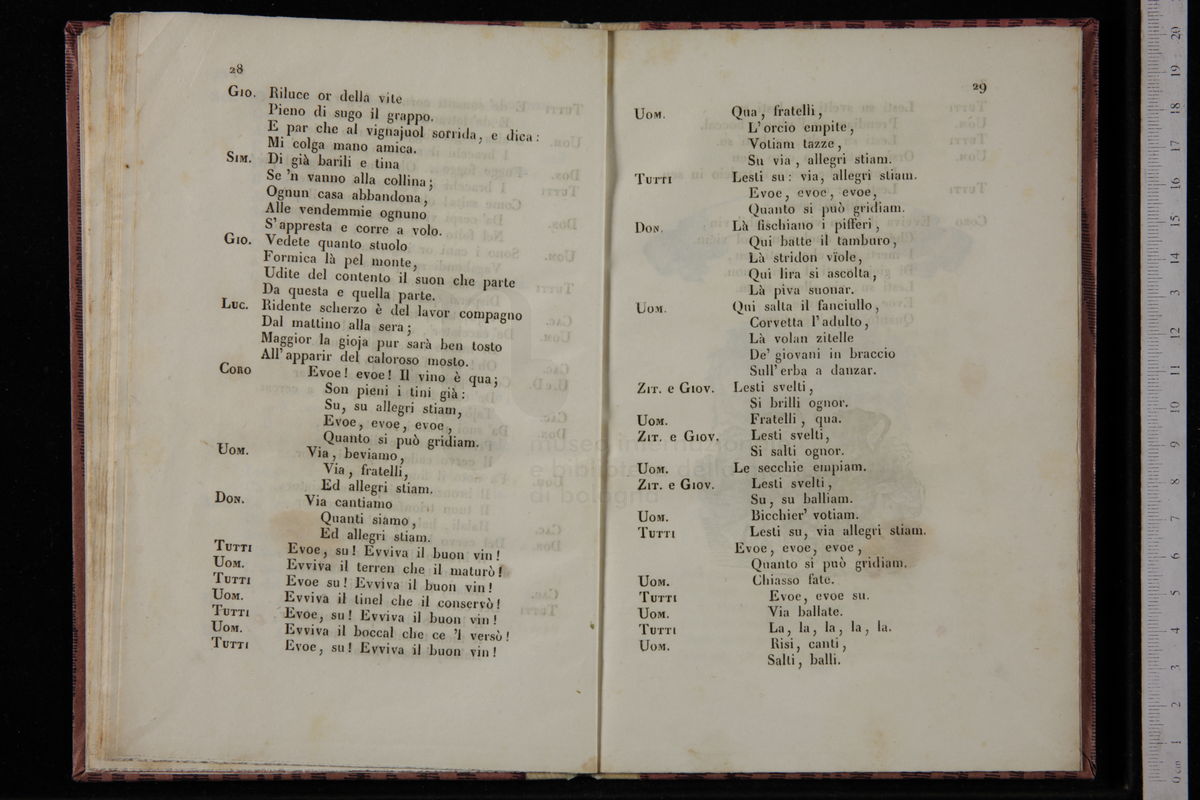 28
Gio. Riluce or della vite
Pieno di sugo il grappo.
E par che al vignajuol sorrida, e dica:
Mi colga mano amica.
Sim. Di già barili e tina
Se 'n vanno alla collina;
Ognun casa abbandona,
Alle vendemmie ognuno
S'appresta e corre a volo.
Gio. Vedete quanto stuolo
Formica là pel monte,
Udite del contento il suon che parte
Da questa e quella parte.
Luc. Ridente scherzo è del lavor compagno
Dal mattino alla sera;
Maggior la gioja pur sarà ben tosto
All'apparir del caloroso mosto.
Coro Evoe! evoe! Il vino è qua;
Son pieni i tini già:
Su, su allegri stiam,
Evoe, evoe, evoe,
Quanto si può gridiam.
Uom. Via, beviamo,
Via, fratelli,
Ed allegri stiam.
Don. Via cantiamo
Quanti siamo,
Ed allegri stiam.
Tutti Evoe, su! Evviva il buon vin!
Uom. Evviva il terren che il maturò!
Tutti Evoe su! Evviva il buon vin!
Uom. Evviva il tinel che il conservò!
Tutti Evoe, su! Evviva il buon vin!
Uom. Evviva il boccal che ce 'l versò!
Tutti Evoe, su! Evviva il buon vin!
29
Uom. Qua, fratelli,
L'orcio empite,
Votiam tazze,
Su via, allegri stiam.
Tutti Lesti su: via, allegri stiam.
Evoe, evoe, evoe,
Quanto si può gridiam.
Don. Là fischiano i pifferi,
Qui batte il tamburo,
Là stridon vïole,
Qui lira si ascolta,
Là piva suonar.
Uom. Qui salta il fanciullo,
Corvetta l'adulto,
Là volan zitelle
De' giovani in braccio
Sull'erba a danzar.
Zit. e Giov. Lesti svelti,
Si brilli ognor.
Uom. Fratelli, qua.
Zit. e Giov. Lesti svelti,
Si salti ognor.
Uom. Le secchie empiam.
Zit. e Giov. Lesti svelti,
Su, su balliam.
Uom. Bicchier' votiam.
Tutti Lesti su, via allegri stiam.
Evoe, evoe, evoe,
Quanto si può gridiam.
Uom. Chiasso fate.
Tutti Evoe, evoe su.
Uom. Via ballate.
Tutti La, la, la, la, la.
Uom. Risi, canti,
Salti, balli.